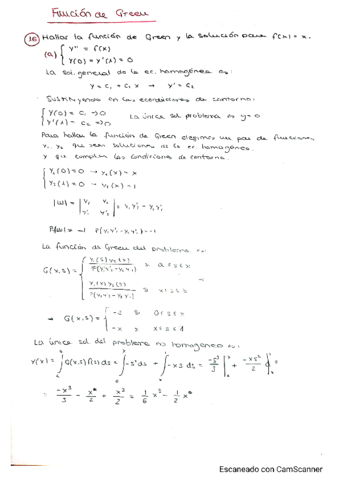 Función de Green
16 Hallar la función de Green y la solución para f(x) = x.
(a) { y'' = f(x)
y(0) = y'(1) = 0
La sol. general de la ec. homogénea es:
y = c₁ + c₂ x → y' = c₂
Sustituyendo en las condiciones de contorno:
{ y(0) = c₁ → 0
y'(1) = c₂ → 0
La única sol problema es y = 0
Para hallar la función de Green elegimos un par de funciones
y₁, y₂ que sean soluciones de la ec. homogénea
y que cumplan las condiciones de contorno.
{ y₁(0) = 0 → y₁(x) = x
y₂'(1) = 0 → y₂(x) = 1
|W| = | y₁ y₂
y₁' y₂' | = y₁y₂' - y₂y₁'
P(x) = 1 P(y₁y₂' - y₂y₁') = -1
La función de Green del problema es
G(x,s) = { y₁(s) y₂(x)
P(y₁y₂' - y₂y₁') si a ≤ s ≤ x
y₁(x) y₂(s)
P(y₁y₂' - y₂y₁') si x ≤ s ≤ b
→ G(x,s) = { -s si 0 ≤ s ≤ x
-x si x ≤ s ≤ 1
La única sol del problema no homogéneo es:
y(x) = ∫ G(x,s) f(s) ds = ∫ -s² ds + ∫ -x s ds = -s³/3 | + -xs²/2 | =
= -x³/3 - x/2 + x³/2 = 1/6 x³ - 1/2 x
Escaneado con CamScanner